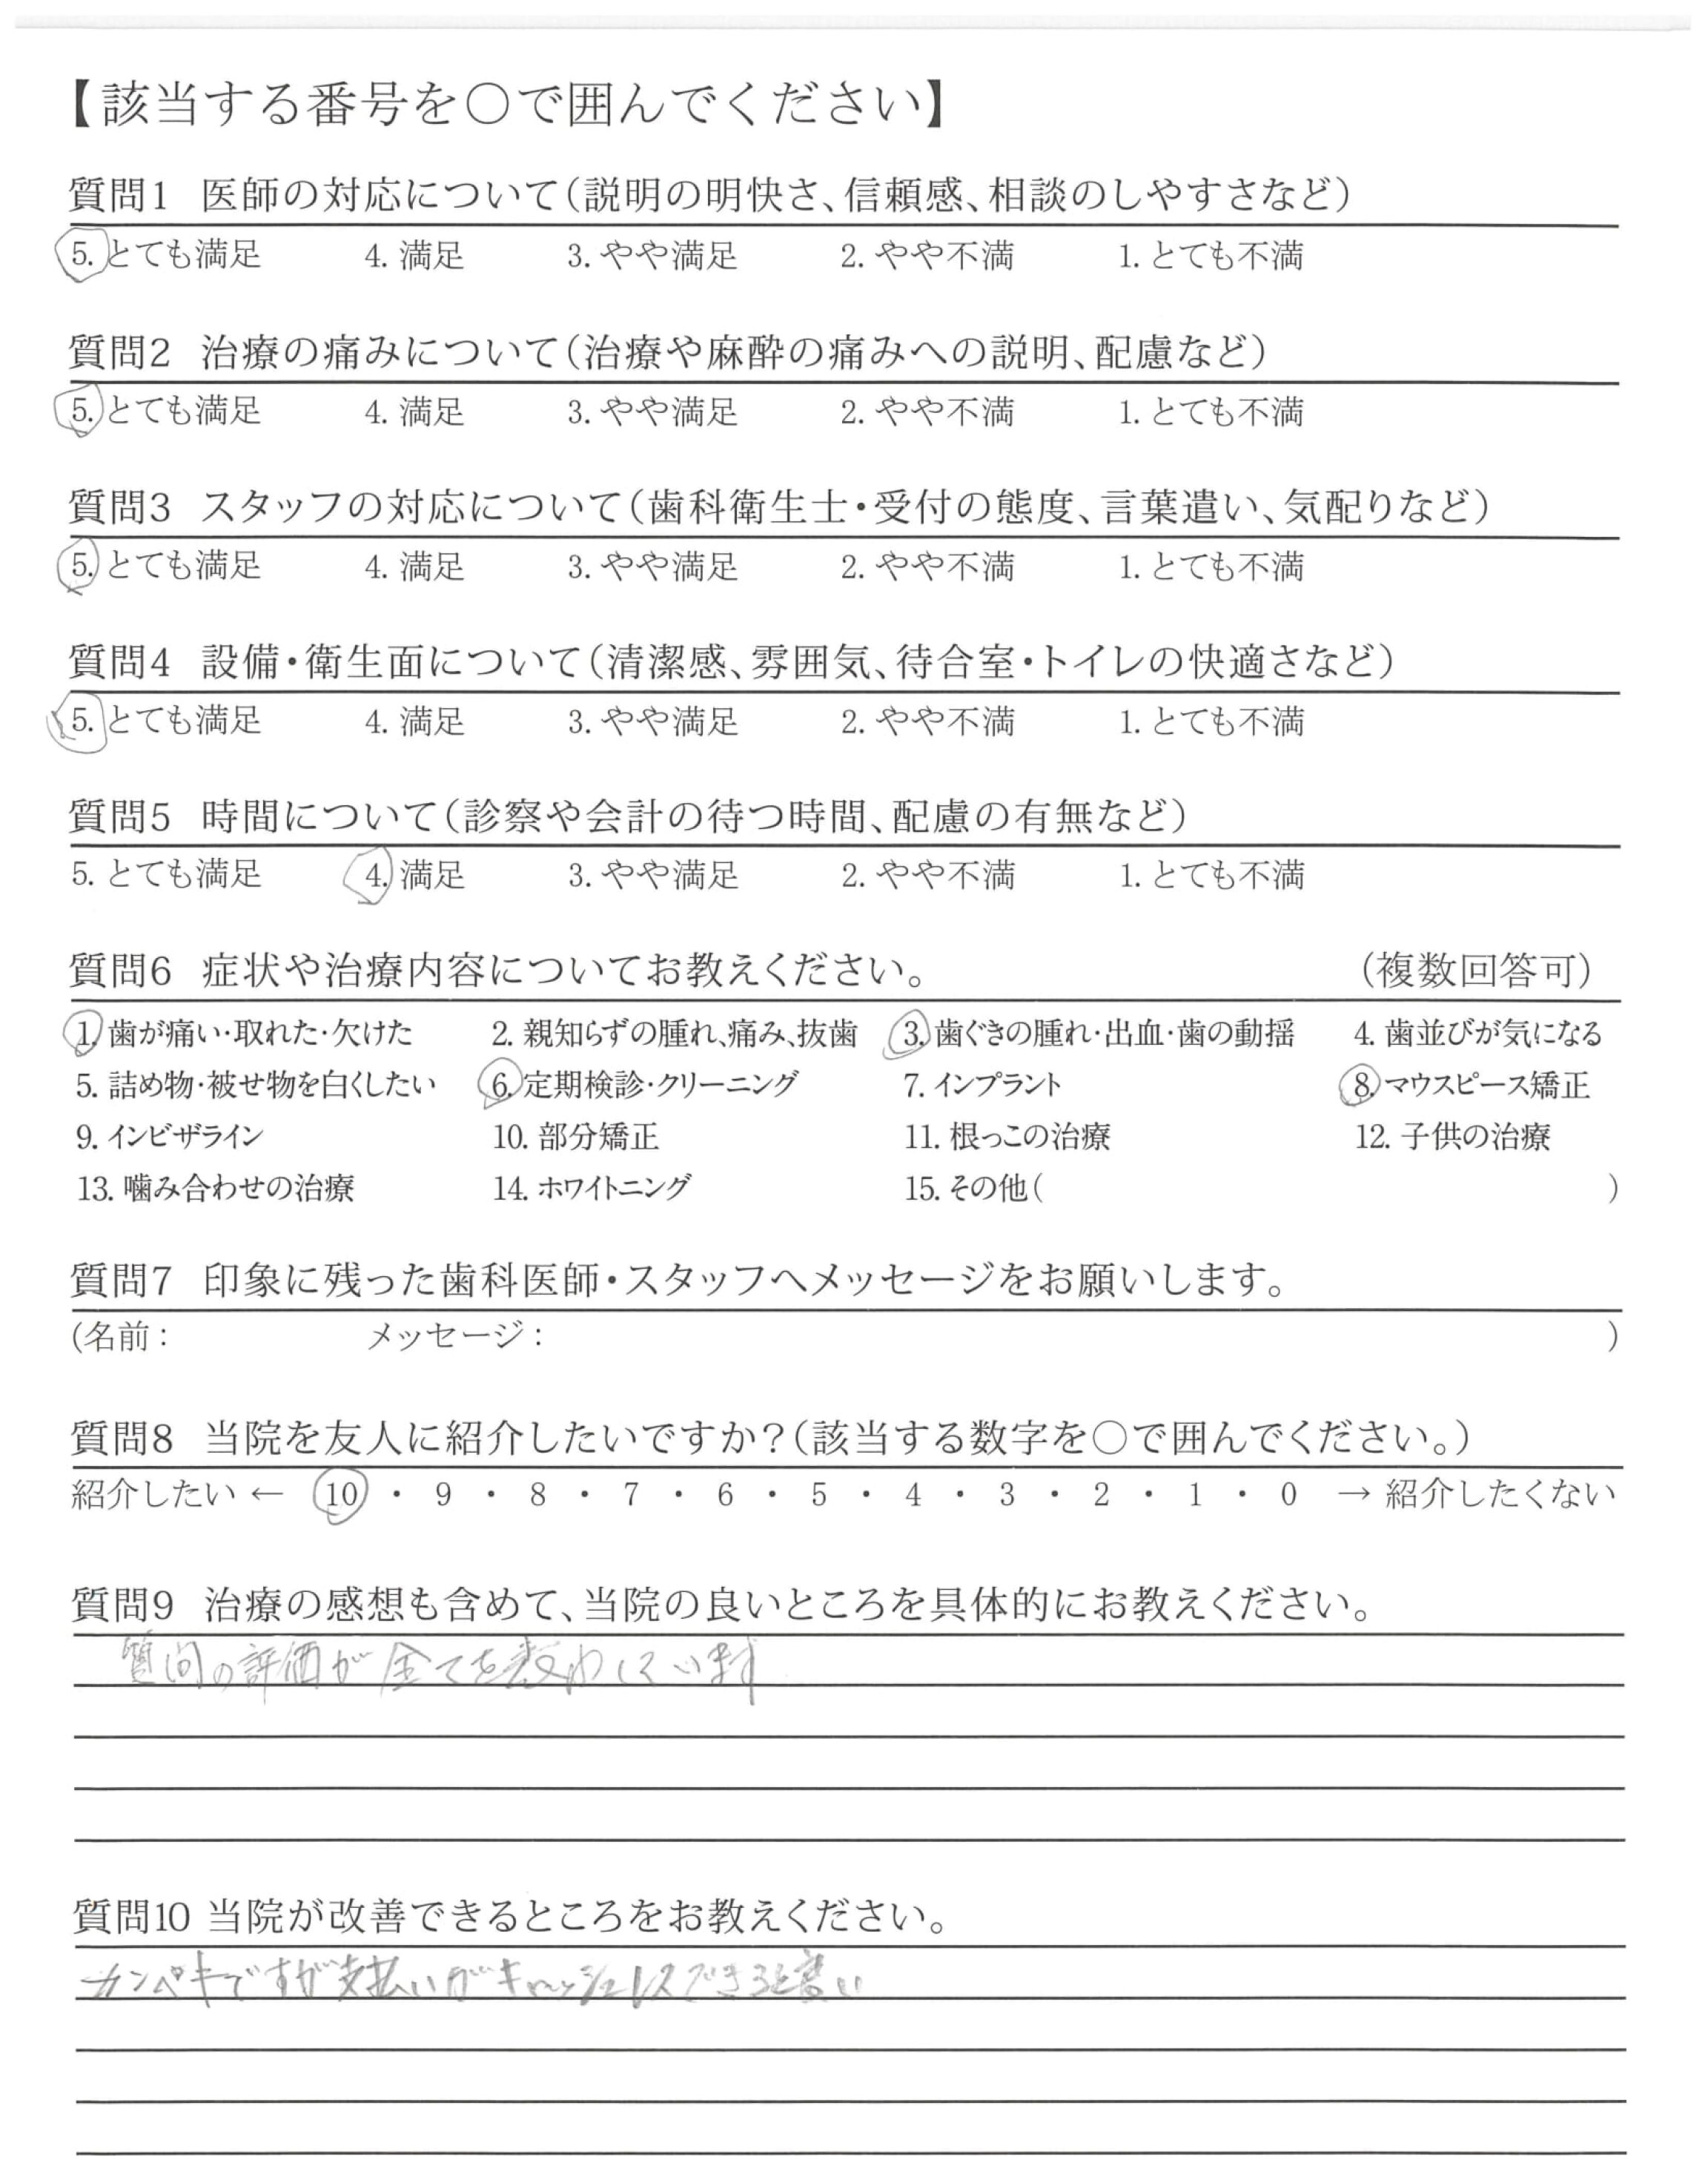 【該当する番号を〇で囲んでください】
質問1 医師の対応について(説明の明快さ、信頼感、相談のしやすさなど)
5. とても満足 4. 満足 3. やや満足 2. やや不満 1. とても不満
質問2 治療の痛みについて(治療や麻酔の痛みへの説明、配慮など)
5. とても満足 4. 満足 3. やや満足 2. やや不満 1. とても不満
質問3 スタッフの対応について(歯科衛生士・受付の態度、言葉遣い、気配りなど)
5. とても満足 4. 満足 3. やや満足 2. やや不満 1. とても不満
質問4 設備・衛生面について(清潔感、雰囲気、待合室・トイレの快適さなど)
5. とても満足 4. 満足 3. やや満足 2. やや不満 1. とても不満
質問5 時間について(診察や会計の待つ時間、配慮の有無など)
5. とても満足 4. 満足 3. やや満足 2. やや不満 1. とても不満
質問6 症状や治療内容についてお教えください。 (複数回答可)
1. 歯が痛い・取れた・欠けた 2. 親知らずの腫れ、痛み、抜歯 3. 歯ぐきの腫れ・出血・歯の動揺 4. 歯並びが気になる
5. 詰め物・被せ物を白くしたい 6. 定期検診・クリーニング 7. インプラント 8. マウスピース矯正
9. インビザライン 10. 部分矯正 11. 根っこの治療 12. 子供の治療
13. 噛み合わせの治療 14. ホワイトニング 15. その他( )
質問7 印象に残った歯科医師・スタッフへメッセージをお願いします。
(名前: メッセージ: )
質問8 当院を友人に紹介したいですか?(該当する数字を〇で囲んでください。)
紹介したい ← 10 ・ 9 ・ 8 ・ 7 ・ 6 ・ 5 ・ 4 ・ 3 ・ 2 ・ 1 ・ 0 → 紹介したくない
質問9 治療の感想も含めて、当院の良いところを具体的にお教えください。
質問の評価が全てを表わしています
質問10 当院が改善できるところをお教えください。
カンペキですが支払いがキャッシュレスできると